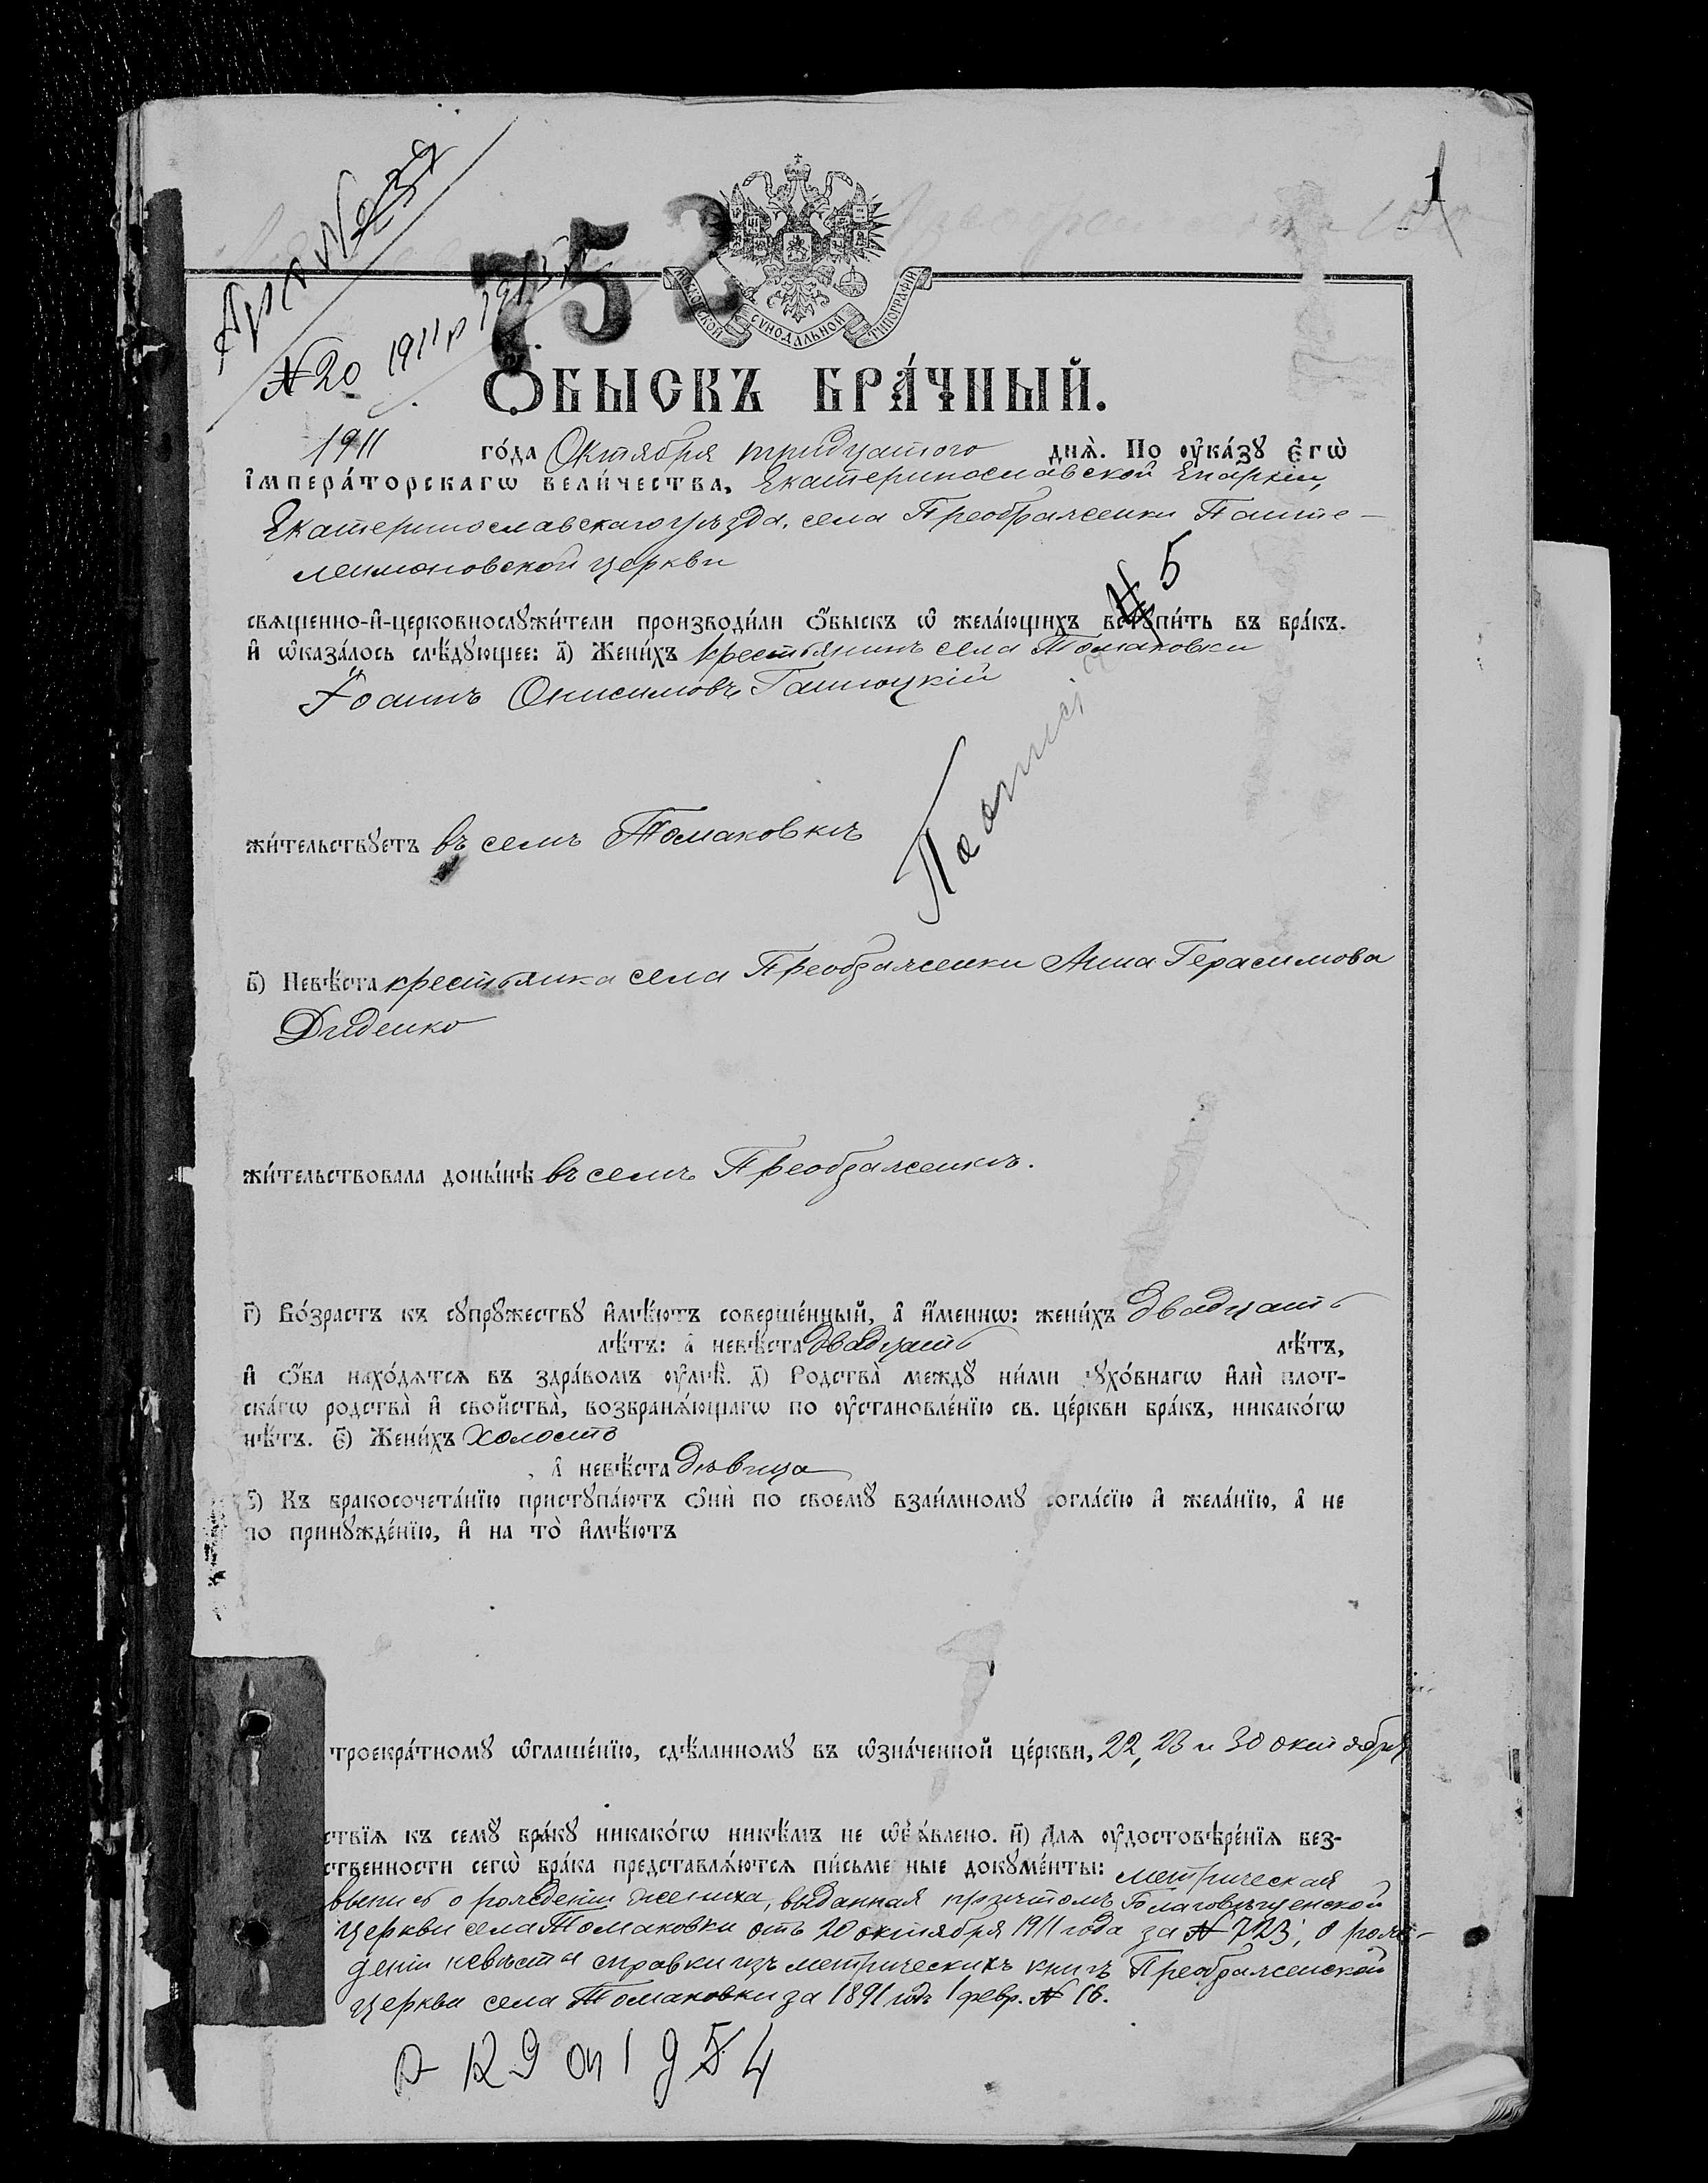 № 239
№ 20 1911 р 1913 р
752
1
МОСКОВСКОЙ СѴНОДАЛЬНОЙ ТИПОГРАФІИ
Ѻбыскъ бра́чный.
1911 го́да Октября тридцатого днѧ̀. По ᲂу҆ка́зꙋ є҆гѡ̀
і҆мпера́торскагѡ вели́чества, Екатеринославской Епархіи,
Екатеринославскаго уѣзда, села Преображенки Панте-
леимоновской церкви
5
свѧщенно-и҆-церковнослꙋжи́тели производи́ли ѻ҆́быскъ ѡ҆ жела́ющихъ встꙋпи́ть въ бра́къ.
и҆ ѡ҆каза́лось слѣ́дꙋющее: а҃) Жени́хъ крестьянинъ села Томаковки
Іоаннъ Онисимовъ Ганноцкій
жи́тельствꙋетъ въ селѣ Томаковкѣ
в҃) Невѣ́ста крестьянка села Преображенки Анна Герасимова
Диденко
жи́тельствовала доны́нѣ въ селѣ Преображенкѣ.
г҃) Во́зрастъ къ сꙋпрꙋ́жествꙋ и҆мѣ́ютъ соверше́нный, а҆ и҆́меннѡ: жени́хъ двадцать
лѣ́тъ: а҆ невѣ́ста двадцать лѣ́тъ,
и҆ ѻ҆́ба нахо́дѧтсѧ въ здра́вомъ ᲂу҆мѣ̀. д҃) Родства̀ междꙋ̀ ни́ми дꙋхо́внагѡ и҆лѝ плот-
ска́гѡ родства̀ и҆ свойства̀, возбранѧ́ющагѡ по ᲂу҆становле́нїю св. це́ркви бра́къ, никако́гѡ
нѣ́тъ. є҃) Жени́хъ холостъ
, а҆ невѣ́ста дѣвица
ѕ҃) Къ бракосочета́нїю пристꙋпа́ютъ ѻ҆нѝ по своемꙋ̀ взаи́мномꙋ согла́сїю и҆ жела́нїю, а҆ не
по принꙋжде́нїю, и҆ на то̀ и҆мѣ́ютъ
троекра́тномꙋ ѡ҆глаше́нїю, сдѣ́ланномꙋ въ ѡ҆зна́ченной це́ркви, 22, 23 и 30 октября
ствїѧ къ семꙋ̀ бра́кꙋ никако́гѡ никѣ́мъ не ѡ҆б̾ѧ́влено. и҃) Длѧ ᲂу҆достовѣре́нїѧ без-
ственности сегѡ̀ бра́ка представлѧ́ютсѧ пи́сьменные докꙋме́нты: метрическая
выпись о рожденіи жениха, выданная причтомъ Благовѣщенской
церкви села Томаковки отъ 20 октября 1911 года за № 723; о рож-
деніи невѣсты справки изъ метрическихъ книгъ Преображенской
церкви села Томаковки за 1891 годъ 1 февр. № 16.
129 оп 1 д 4